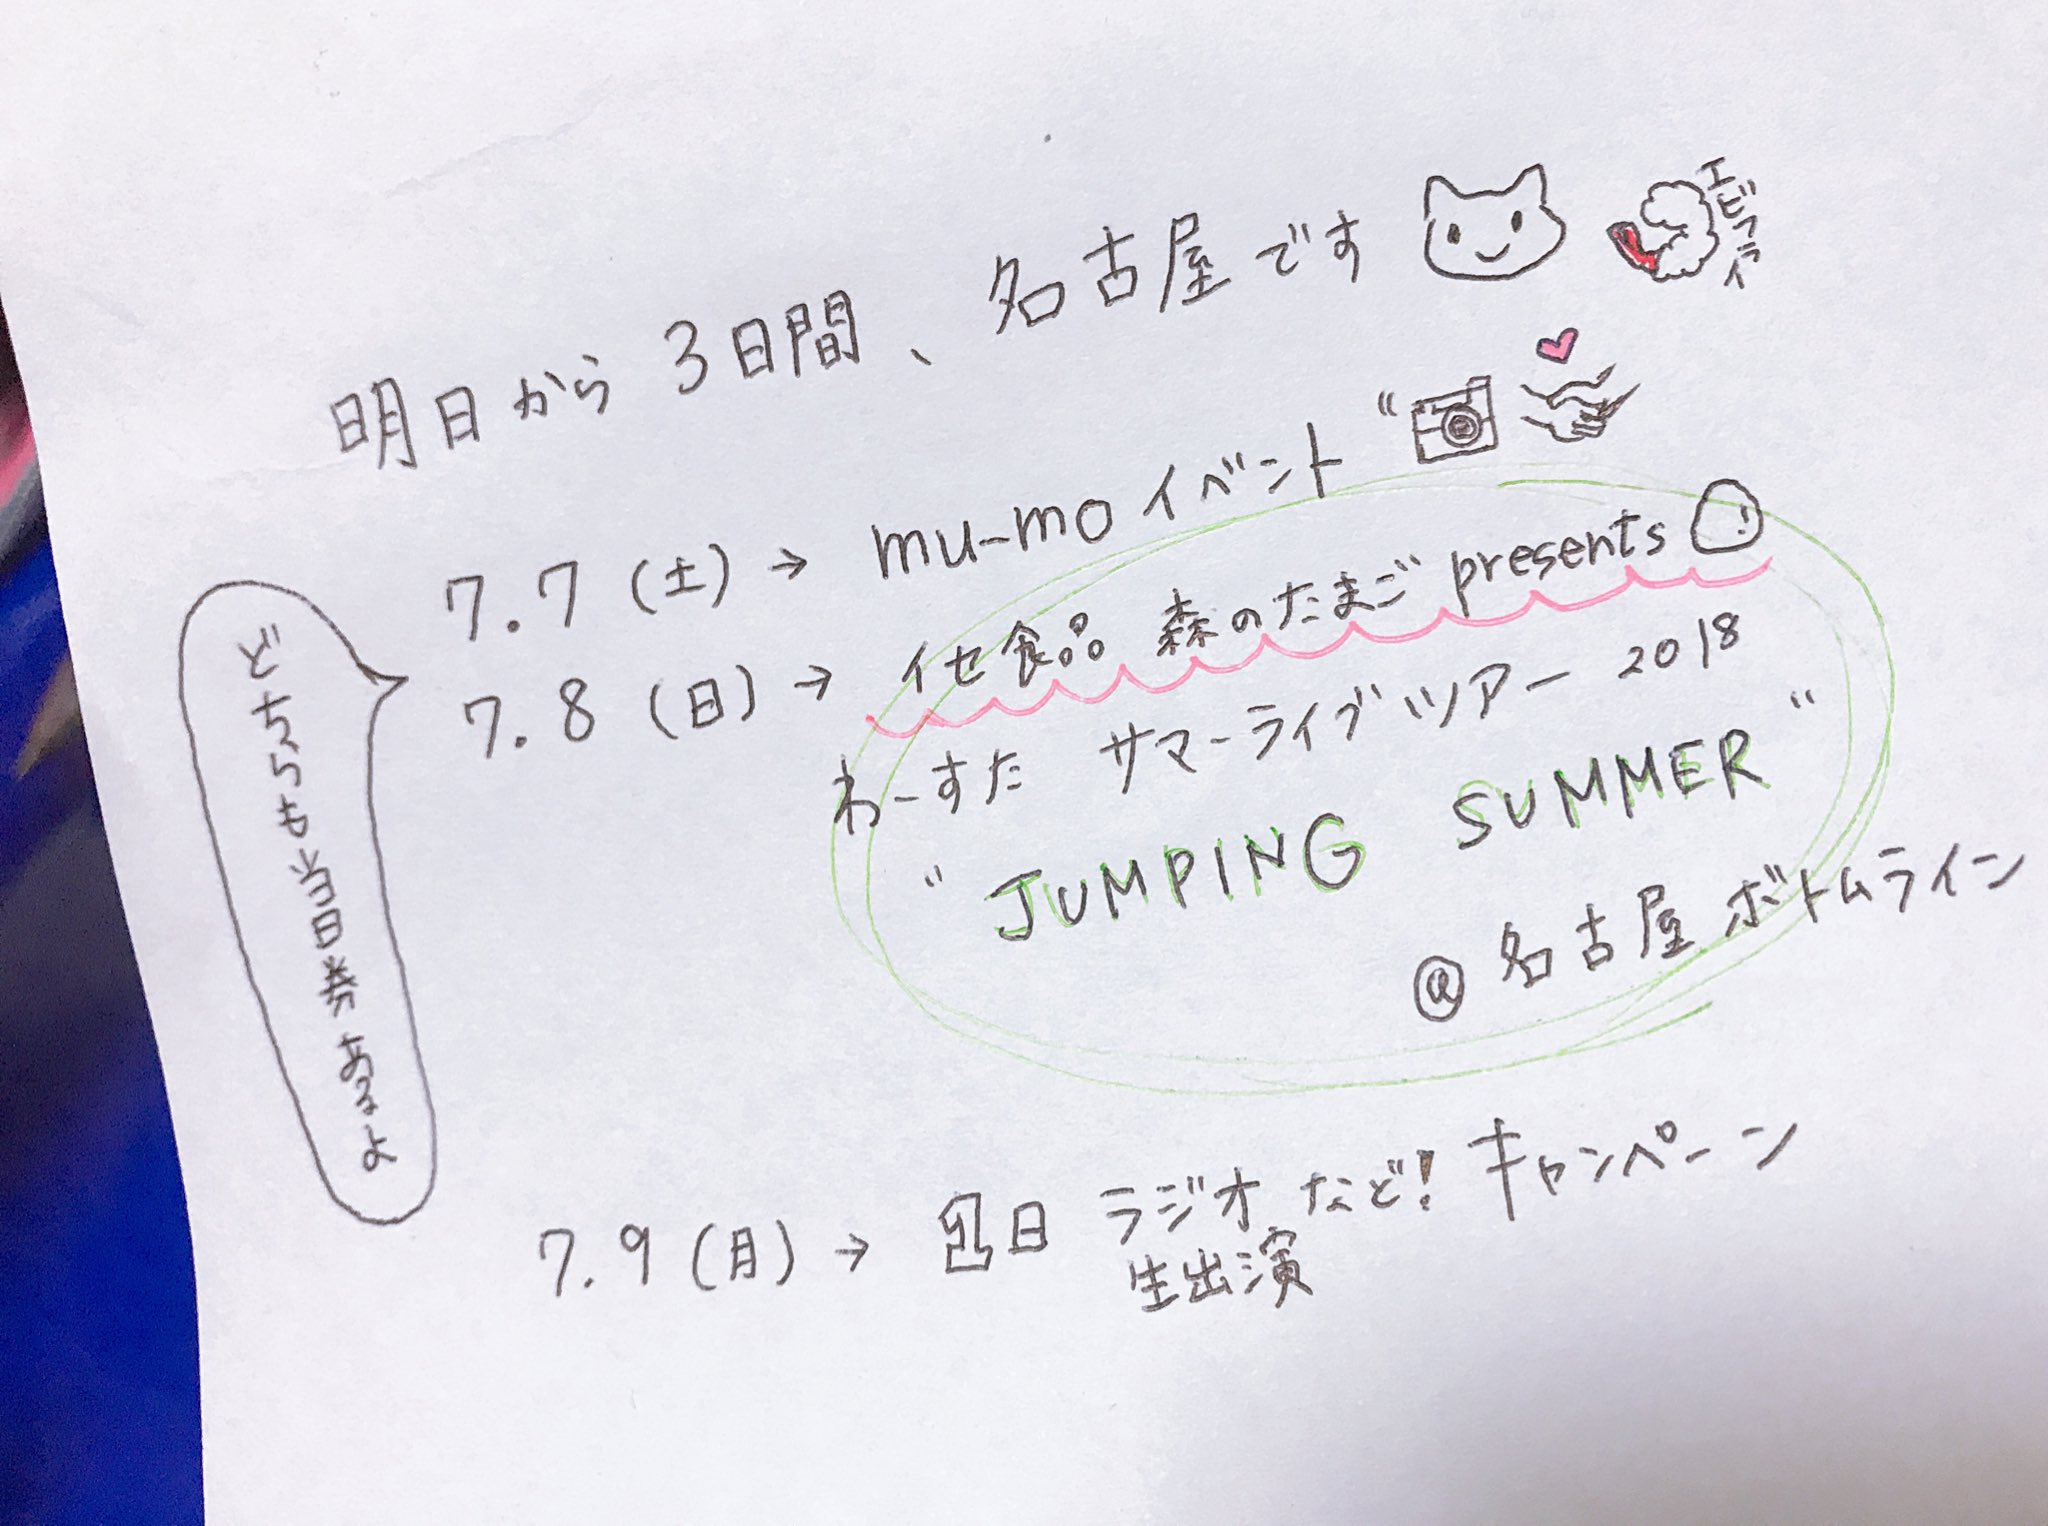 明日から3日間、名古屋です
エビフライ
7.7(土)→ mu-moイベント
7.8(日)→ イセ食品 森のたまごpresents
わーすた サマーライブツアー 2018
"JUMPING SUMMER"
@名古屋ボトムライン
どちらも当日券あるよ
7.9(月)→ 1日 ラジオなど! キャンペーン
生出演